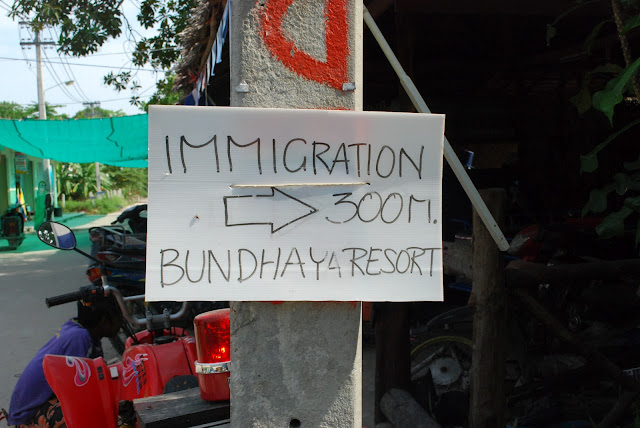 IMMIGRATION
300M.
BUNDHAYA RESORT